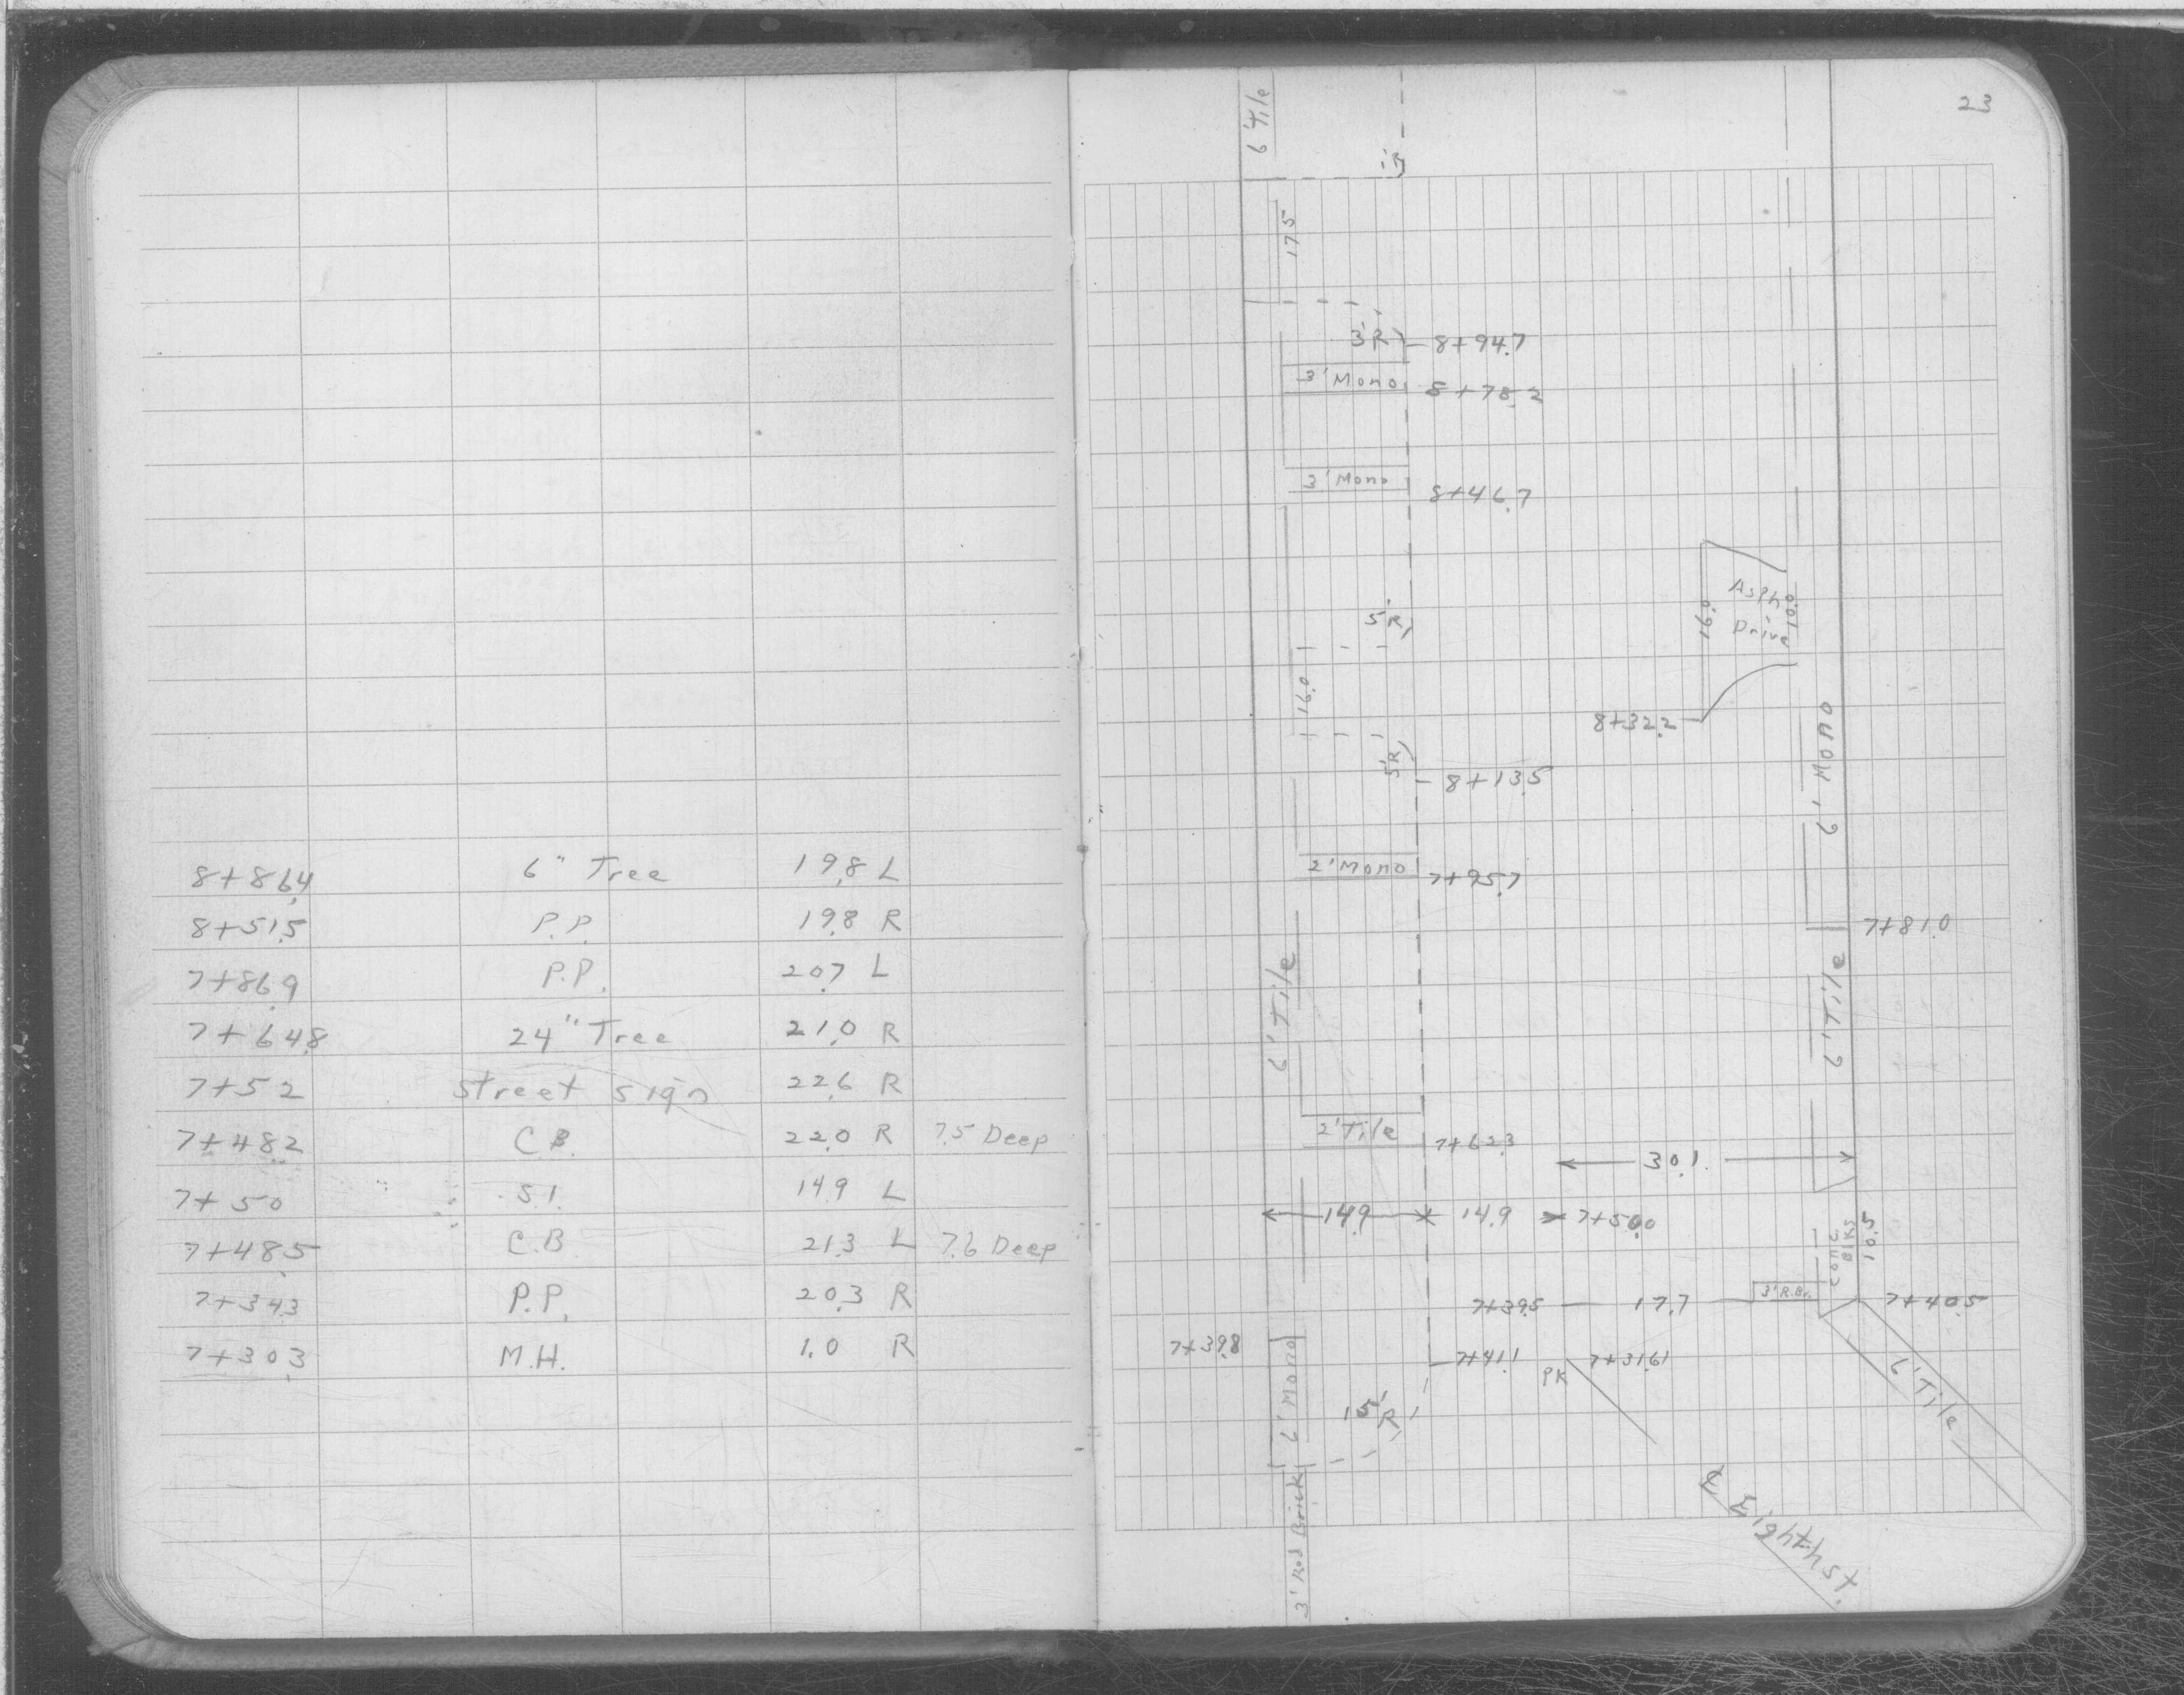 8+86.4 6" Tree 19.8 L
8+51.5 P.P. 19.8 R
7+86.9 P.P. 20.7 L
7+64.8 24" Tree 21.0 R
7+52 Street Sign 22.6 R
7+48.2 C.B. 22.0 R 7.5 Deep
7+50 S.I. 14.9 L
7+48.5 C.B. 21.3 L 7.6 Deep
7+34.3 P.P. 20.3 R
7+30.3 M.H. 1.0 R
23
6' Tile
17.5
3'R
8+94.7
3' Mono
8+78.2
3' Mono
8+46.7
Asph
Drive
16.0
10.0
5'R
16.0
8+32.2
6' Mono
5'R
8+13.5
2' Mono
7+95.7
7+81.0
6' Tile
6' Tile
2' Tile
7+62.3
30.1
14.9
14.9
7+50.0
Conc.
Blks
10.5
7+39.5
17.7
3' R.Br.
7+40.5
7+39.8
7+41.1
PK
7+31.61
6' Mono
15'R
6' Tile
3' Red Brick
℄ Eighth St.